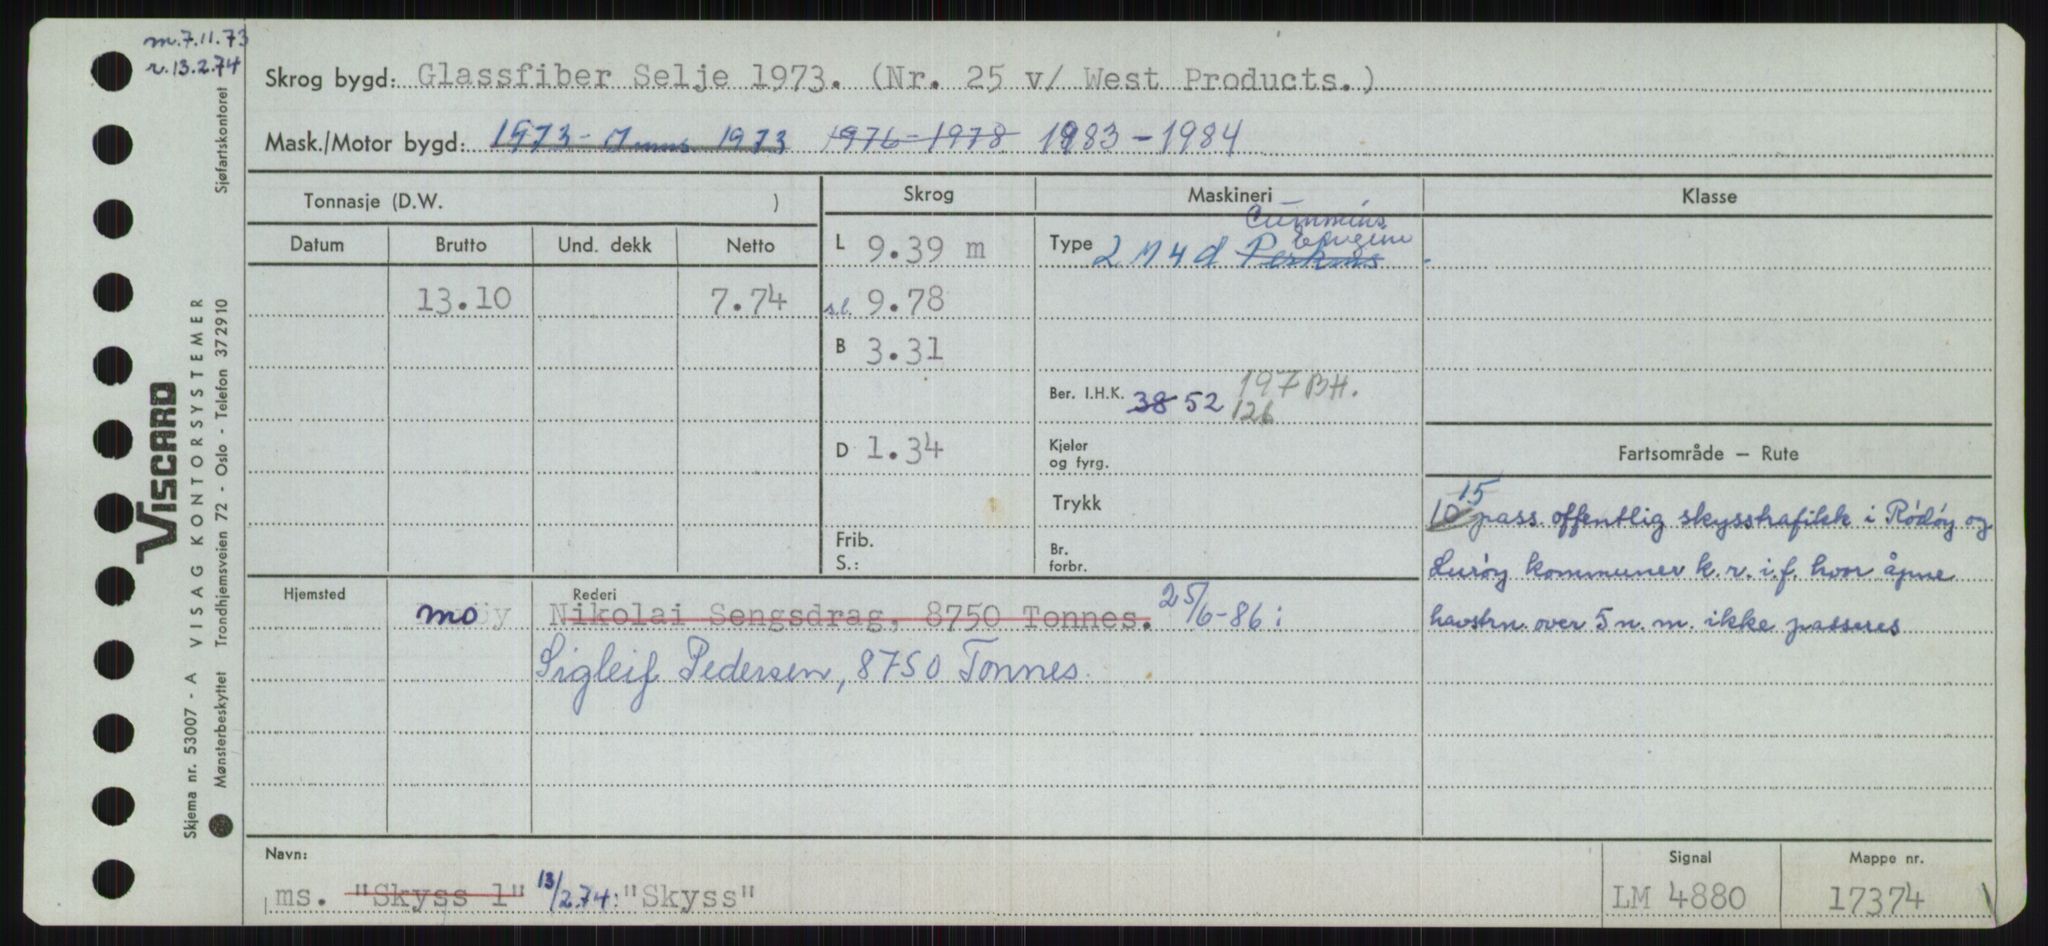 m.7.11.73
r.13.2.74
Sjøfartskontoret
Skrog bygd: Glassfiber Selje 1973. (Nr. 25 v/ West Products.)
Mask./Motor bygd: 1973 - 1973 1976-1978 1983-1984
Tonnasje (D.W. )
Skrog
Maskineri
Klasse
Datum Brutto Und. dekk Netto
L 9.39 m
Type 2 M 4 d Perkins Cummins
13.10 7.74
s.l. 9.78
B 3.31
Ber. I.H.K. 38 52 197 BH.
126
D 1.34
Kjeler
og fyrg.
Trykk
Frib.
S.:
Br.
forbr.
Fartsområde — Rute
15
10 pass offentlig skysstrafikk i Rødøy og
Lurøy kommuner k.r.i.f. hvor åpne
havstrn. over 5 n.m. ikke passeres
Hjemsted
mo
Rederi
Nikolai Sengsdrag, 8750 Tonnes. 25/6-86:
Sigleif Pedersen, 8750 Tonnes.
Navn:
ms. "Skyss 1" 13/2.74: "Skyss"
Signal
LM 4880
Mappe nr.
17374
VISCARD
VISAG KONTORSYSTEMER
Trondhjemsveien 72 - Oslo - Telefon 372910
Skjema nr. 53007 - A
Mønsterbeskyttet